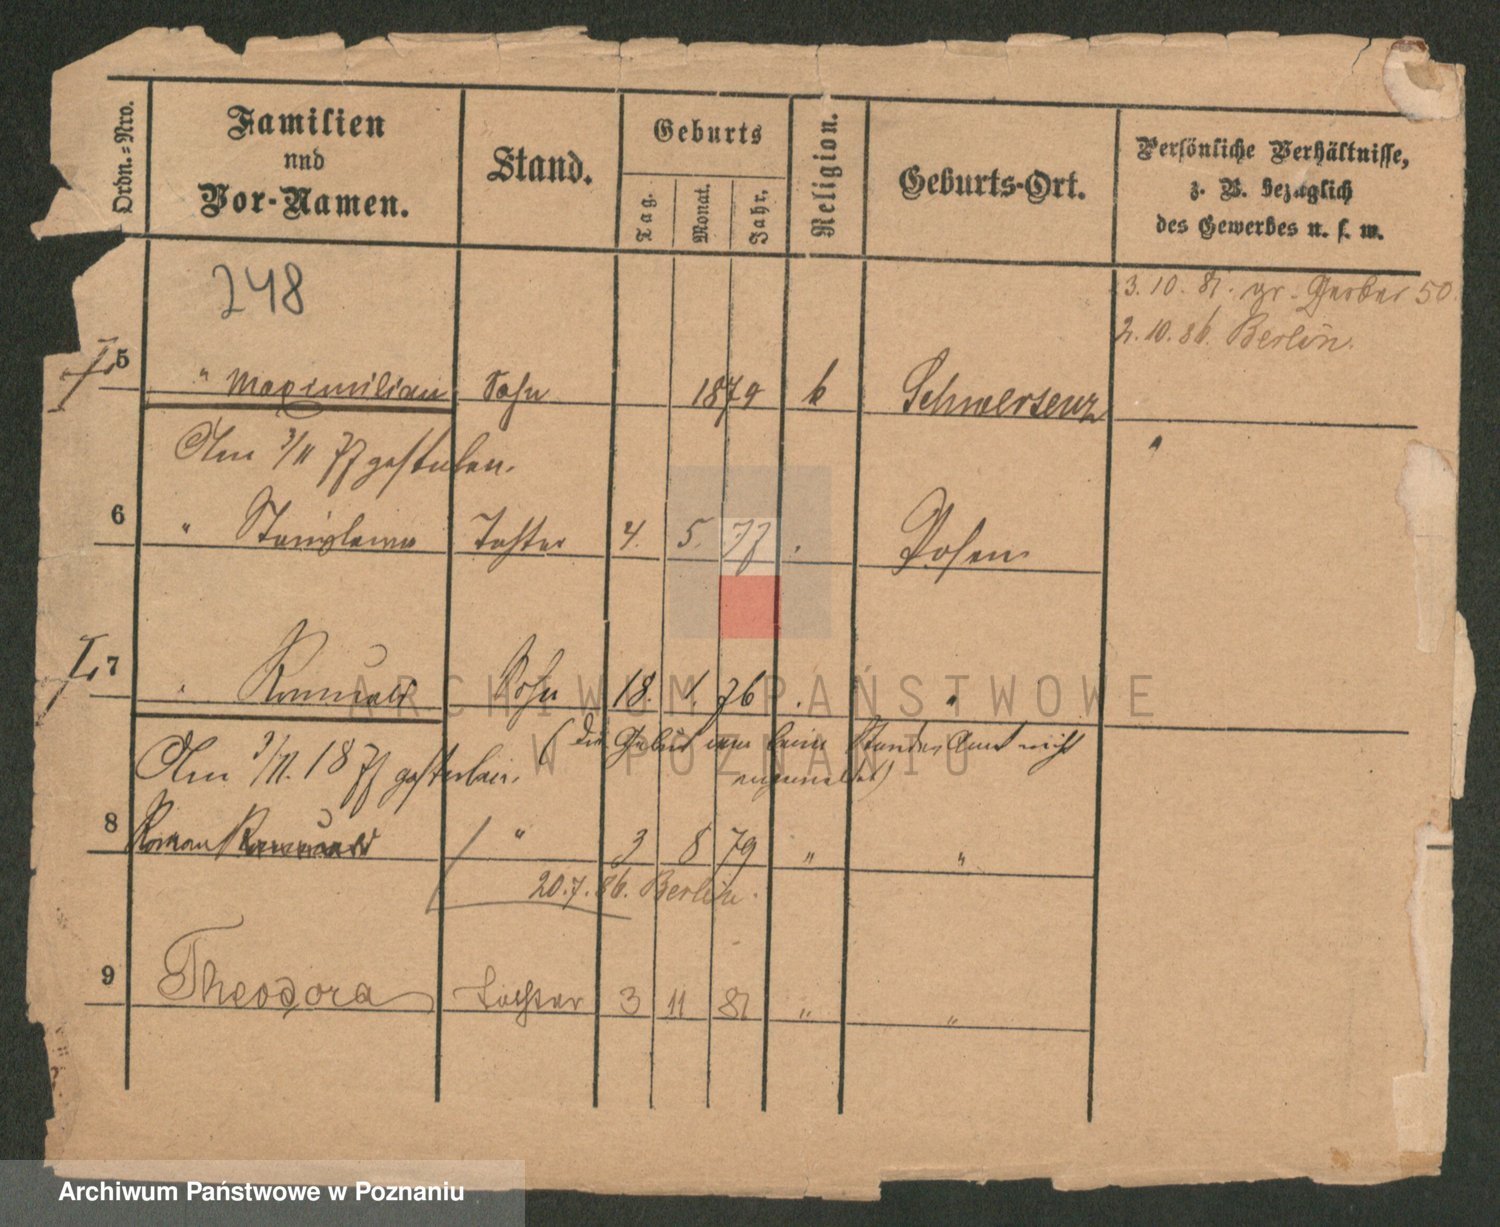 Ordn.-Nro.
Familien
und
Vor-Namen.
Stand.
Geburts
Tag.
Monat.
Jahr.
Religion.
Geburts-Ort.
Persönliche Verhältnisse,
z. B. bezüglich
des Gewerbes u. s. w.
248
3. 10. 81. gr. Gerber 50.
2. 10. 86. Berlin.
5 " Maximilian Sohn 1874 k Schwersenz
Am 3/11 77 gestorben.
6 " Stanislawa Tochter 4. 5. 77 Posen
7 " Romuald Sohn 18. 1. 76 "
Am 3/11. 1877 gestorben. (Die Geburt beim Standes Amt nicht
angemeldet)
8 Roman Romuald " 3 8 79 " "
20. 7. 86. Berlin.
9 Theodora Tochter 3 11 81 " "
ARCHIWUM PAŃSTWOWE
W POZNANIU
Archiwum Państwowe w Poznaniu